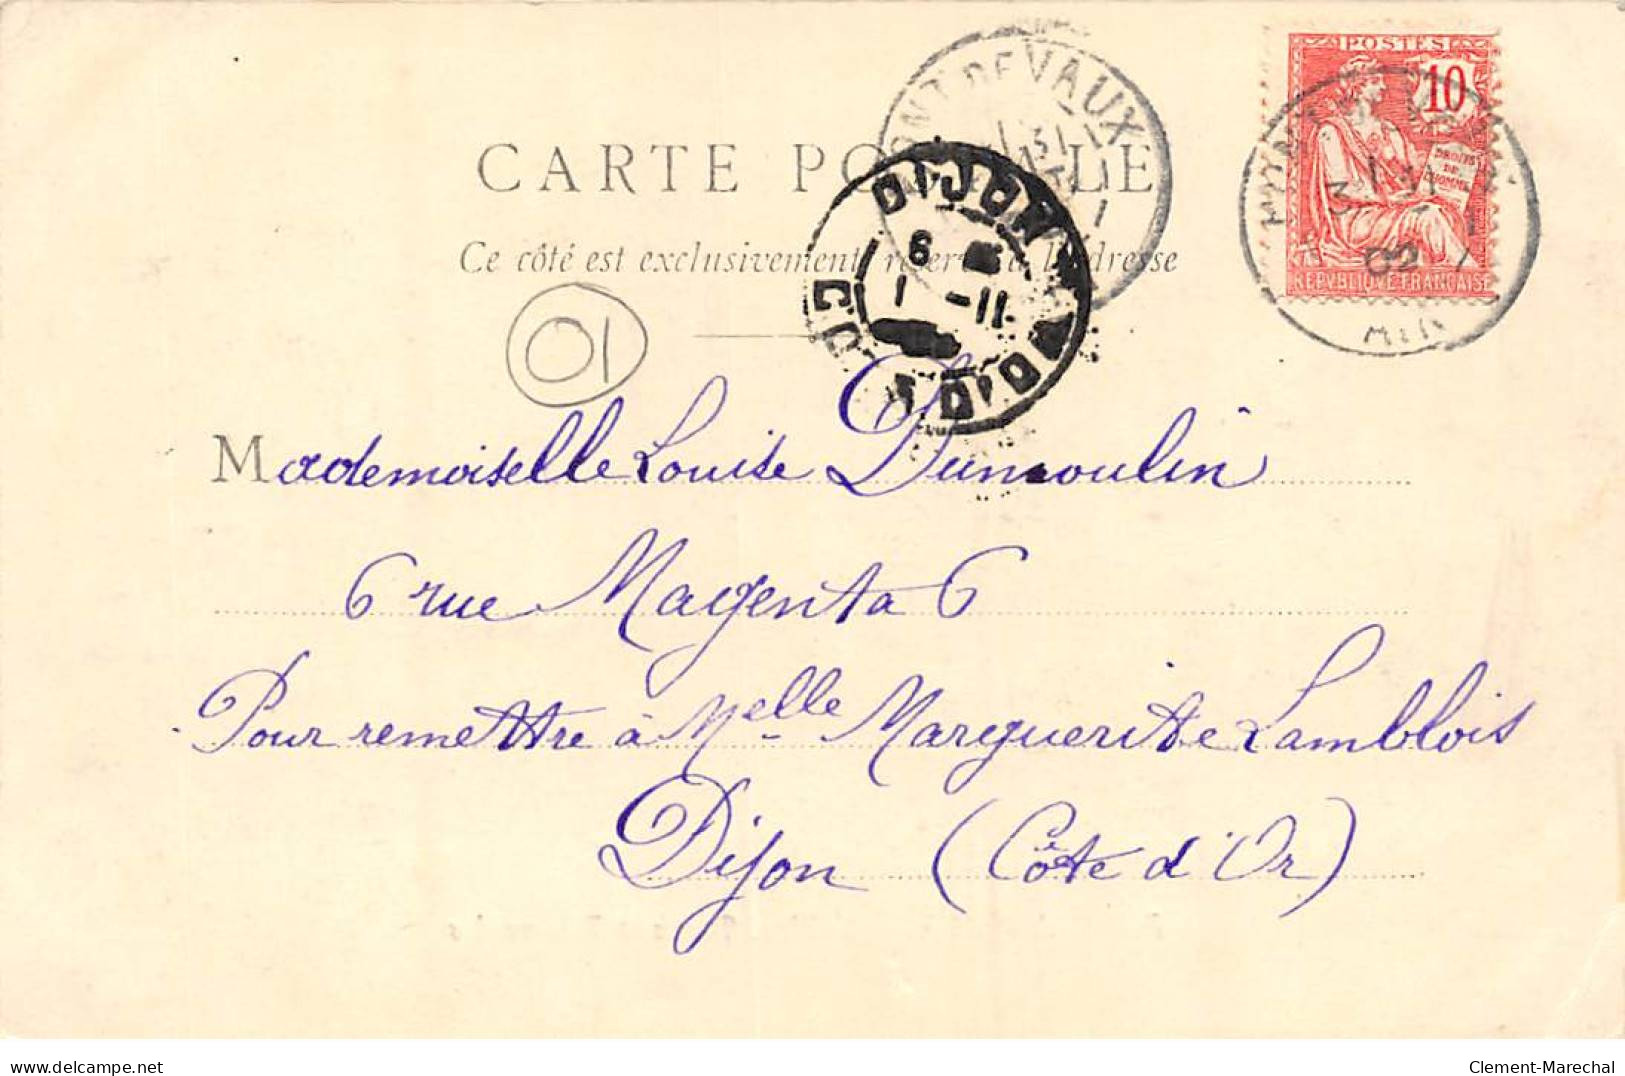 POSTES
10
DROITS
DE
L'HOMME
REPUBLIQUE FRANÇAISE
PONT DE VAUX
AIN
PONT DE VAUX
31
CARTE POSTALE
Ce côté est exclusivement réservé à l'adresse
DIJON
6
1 -11
COTE D'OR
01
Mademoiselle Louise Dumoulin
6 rue Magenta 6
Pour remettre à Melle Marguerite Lamblois
Dijon (Côte d'Or)
delcampe.net
Clement-Marechal